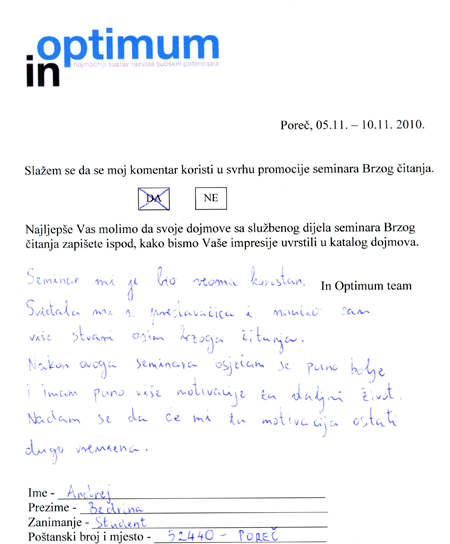 optimum
in
najmoćniji sustav razvoja ljudskih potencijala
Poreč, 05.11. – 10.11. 2010.
Slažem se da se moj komentar koristi u svrhu promocije seminara Brzog čitanja.
DA NE
Najljepše Vas molimo da svoje dojmove sa službenog dijela seminara Brzog
čitanja zapišete ispod, kako bismo Vaše impresije uvrstili u katalog dojmova.
Seminar mi je bio veoma koristan. In Optimum team
Sviđala mi se predavačica i naučio sam
više stvari osim brzoga čitanja.
Nakon ovoga seminara osjećam se puno bolje
i imam puno više motivacije za daljni život.
Nadam se da će mi ta motivacija ostati
dugo vremena.
Ime - Andrej
Prezime - Bedrina
Zanimanje - Student
Poštanski broj i mjesto - 52440 - POREČ